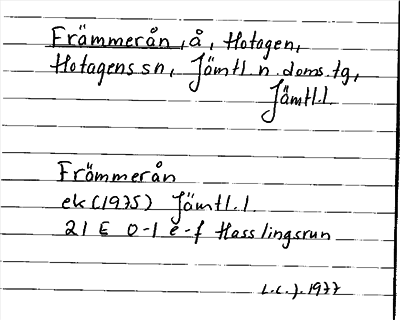 Främmerån, å, Hotagen,
Hotagens sn, Jämtl. n. doms.tg,
Jämtl.l.
Främmerån
ek (1975) Jämtl.l.
21 E 0-1 e-f Hasslingsrun
L.C.J. 1977